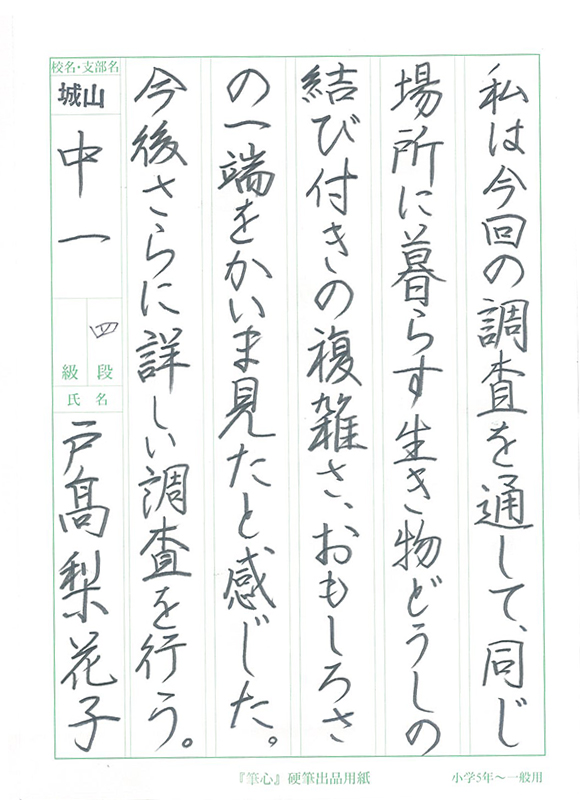 私は今回の調査を通して、同じ
場所に暮らす生き物どうしの
結び付きの複雑さ、おもしろさ
の一端をかいま見たと感じた。
今後さらに詳しい調査を行う。
校名・支部名
城山
中一
四
級 段
氏名
戸髙梨花子
『筆心』硬筆出品用紙
小学5年～一般用